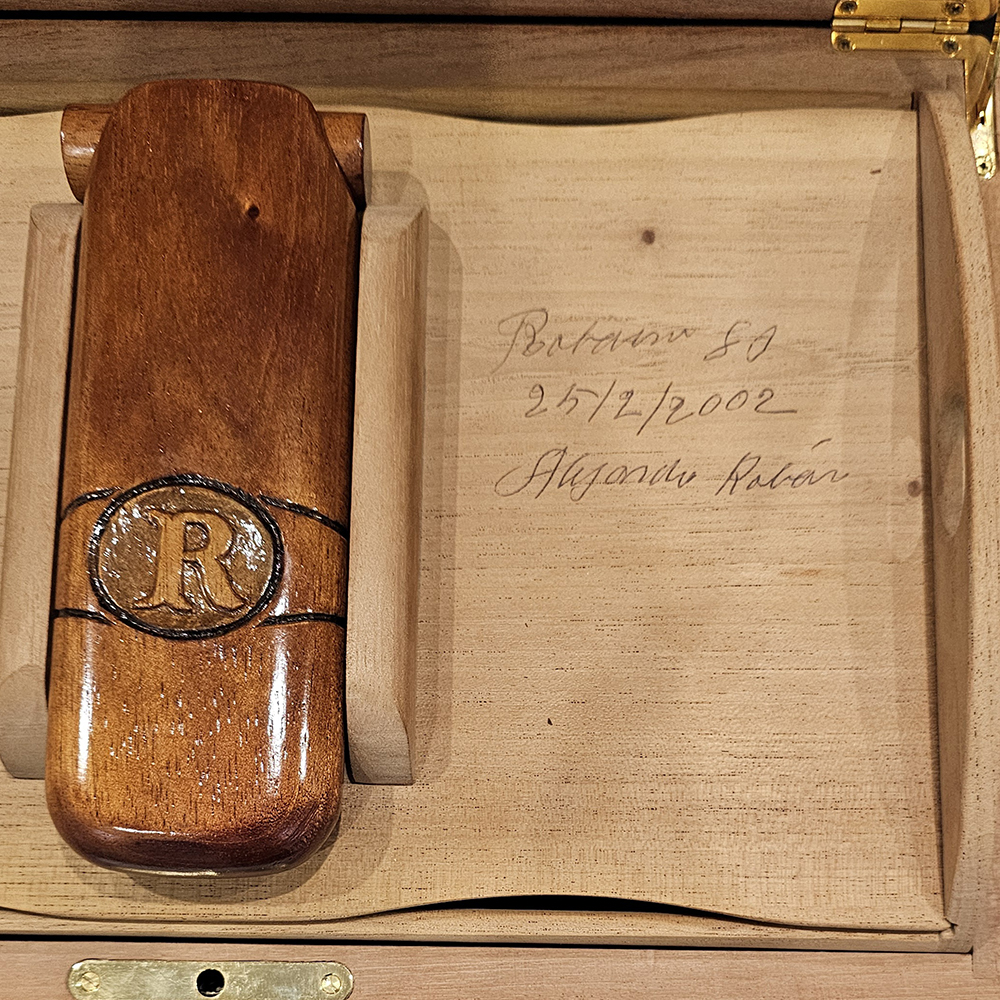 R
Robaina 80
25/2/2002
Alejandro Robaina